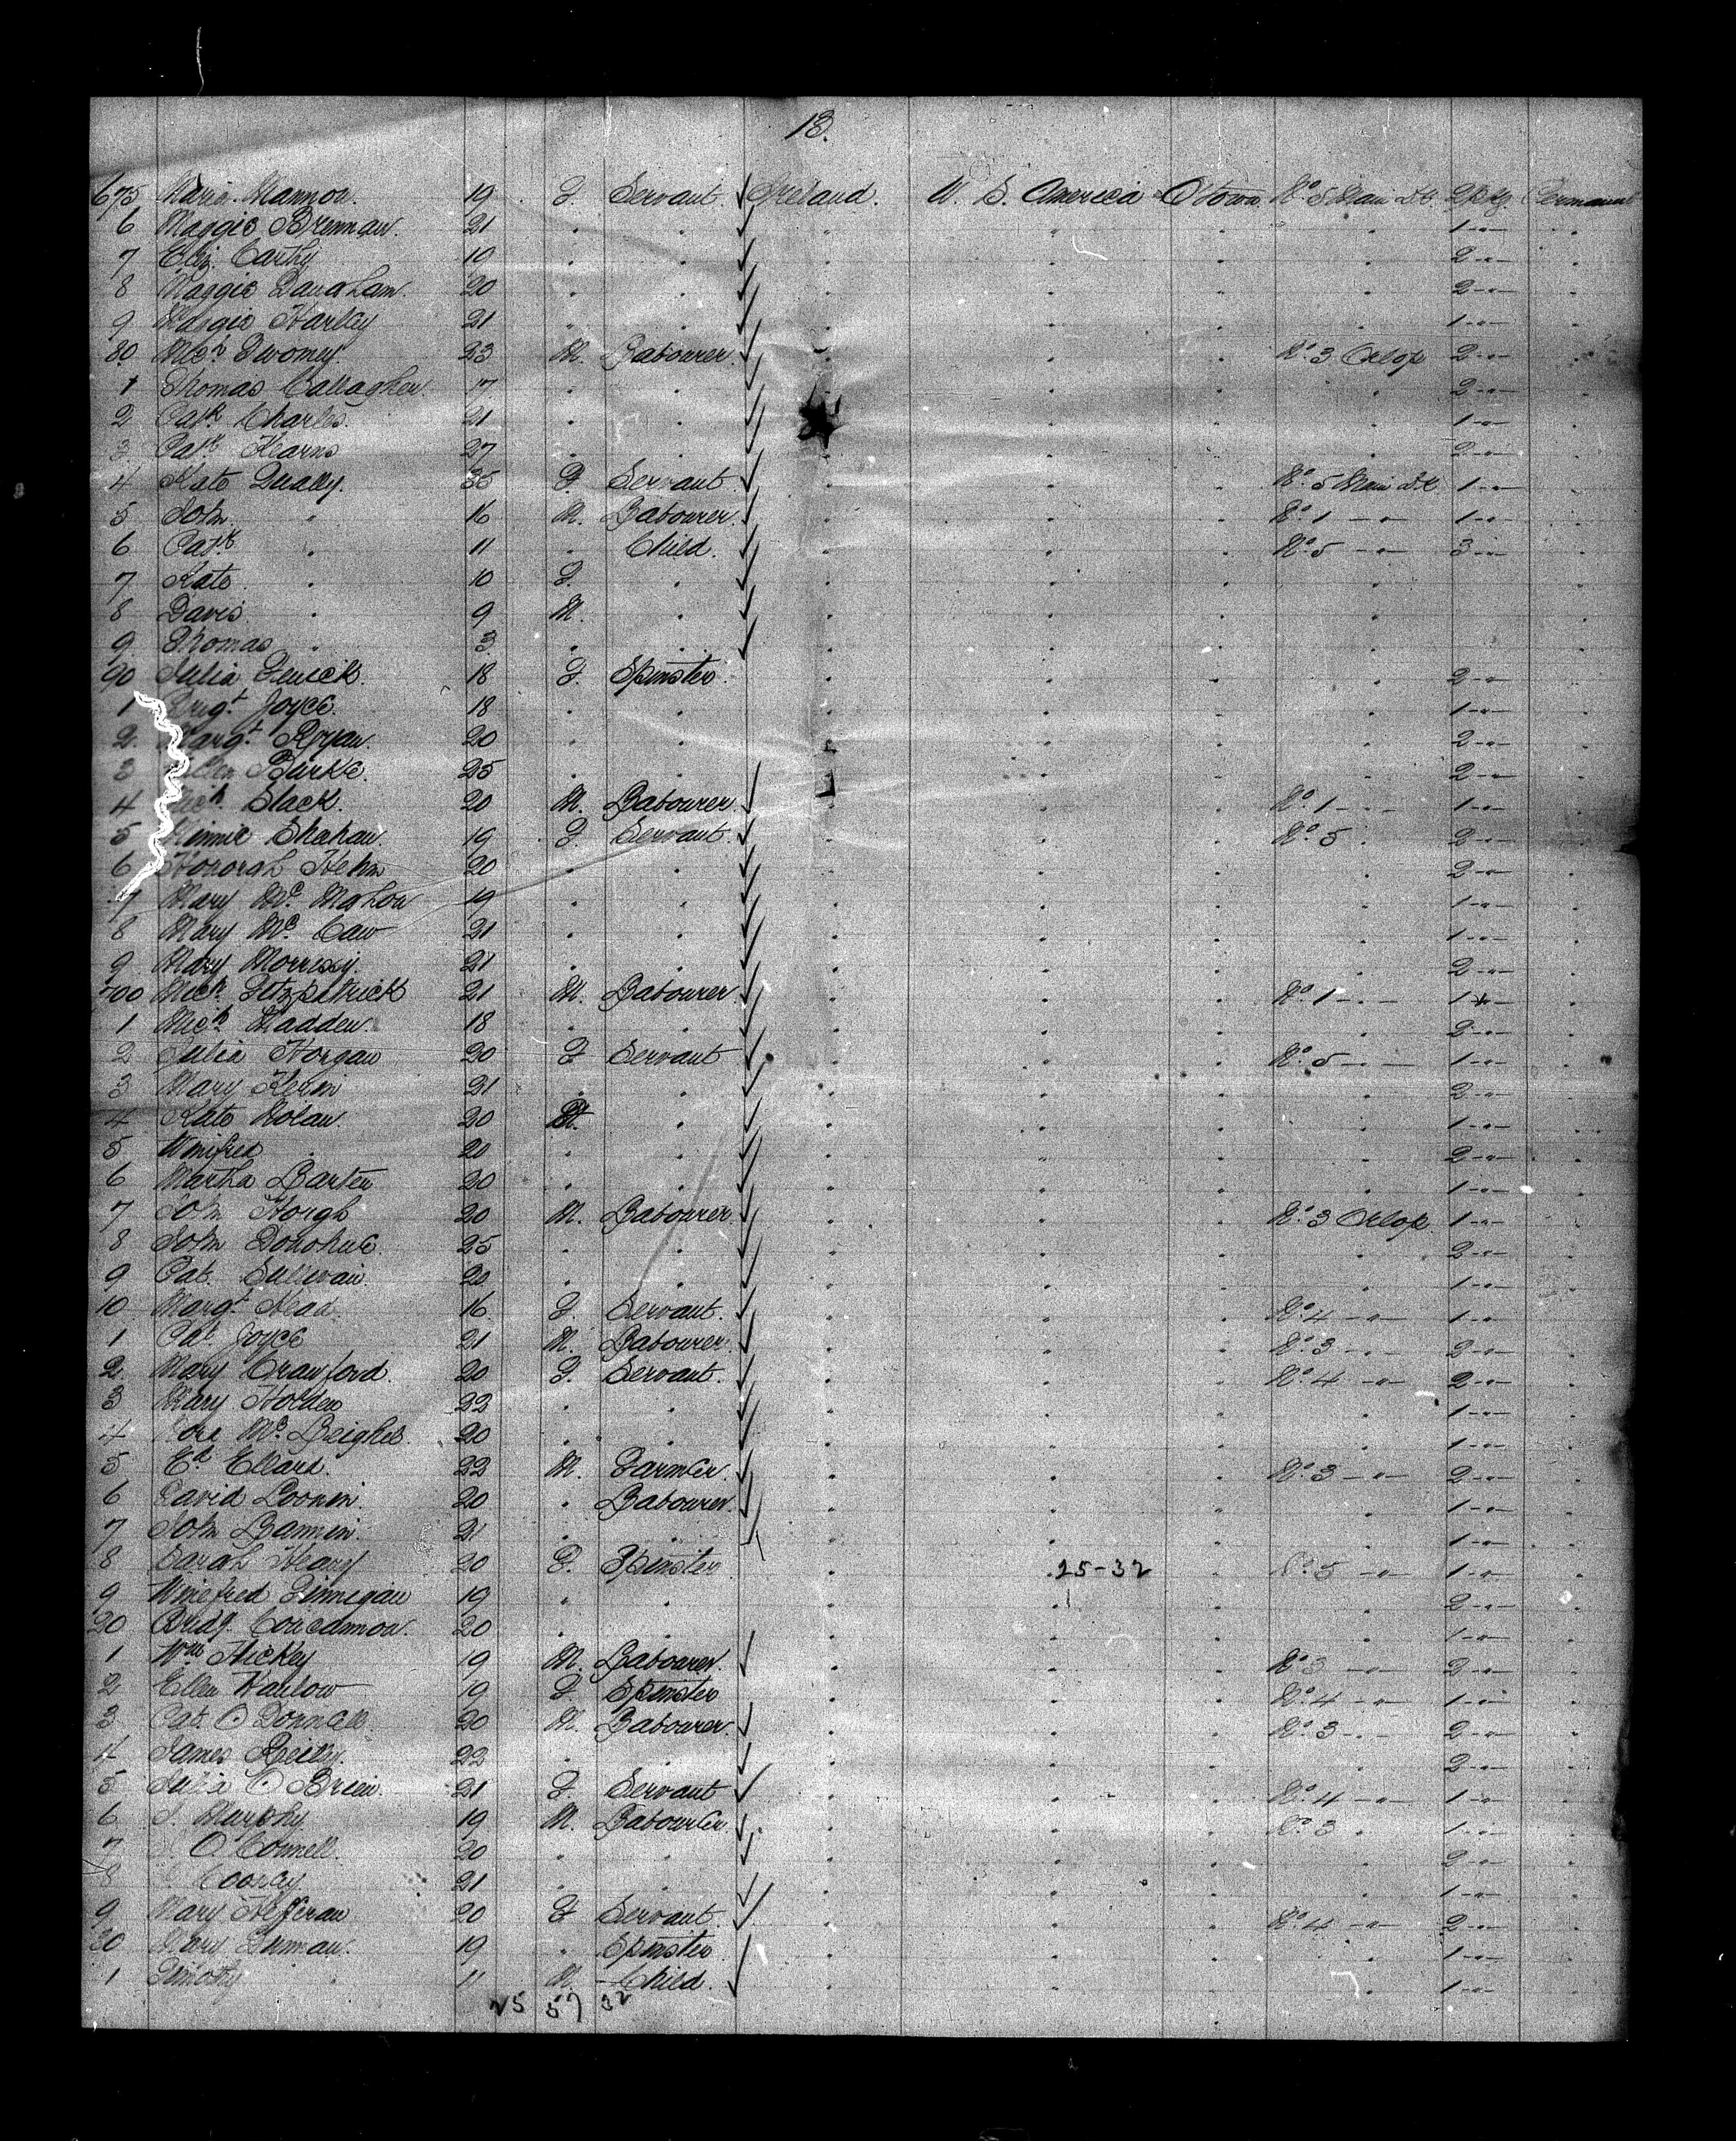 18.
675 Maria Mannon. 19 F. Servant. Ireland. U. S. America Q'Town No 5 Main Dk. 2 Pkg. Permanent
6 Maggie Brennan. 21 . . . . . . 1 -"- .
7 Eliz. Carthy 10 . . . . . . 2 -"- .
8 Maggie 20 . . . . . . 2 -"- .
9 Maggie Harley 21 . . . . . . 1 -"- .
80. Mich Twomey. 23 M. Labourer . . . No 3 Orlop 2 -"- .
1 Thomas Callaghan. 17 . . . . . . 2 -"- .
2 Patk Charles. 21 . . . . . . 1 -"- .
3 Patk Kearns 27 . . . . . . 2 -"- .
4 Kate Qually. 35 F. Servant . . . No 5 Main Dk 1 -"- .
5 John " 16 M. Labourer. . . . No 1 -"- 1 -"- .
6 Patk . 11 . Child. . . . No 5 -"- 3 -"- .
7 Kate . 10 F. . . . . . .
8 David . 9 M. . . . . . .
9 Thomas " 3 . . . . . . .
90 Julia 18 F Spinster. . . . . 2 -"- .
1 Brigt Joyce. 18 . . . . . . 1 -"- .
2. Margt Ryan. 20 . . . . . . 2 -"- .
3 Ellen Burke. 25 . . . . . . 2 -"- .
4 Mich Slack. 20 M. Labourer . . . No 1 -"- 1 -"- .
5 Minnie Shehan. 19 F. Servant. . . . No 5 . 2 -"- .
6 Honorah 20 . . . . . . 2 -"- .
7 Mary Mc Mahon 19 . . . . . . 1 -"- .
8 Mary Mc Caw 21 . . . . . . 1 -"- .
9 Mary Morrissy. 21 . . . . . . 2 -"- .
700 Mich Fitzpatrick 21 M. Labourer . . . No 1 -"- 1 -"- .
1 Mich Madden. 18 . . . . . . 2 -"- .
2 Julia Horgan 20 F Servant . . . No 5 -"- 1 -"- .
3 Mary Kerin 21 . . . . . . 2 -"- .
4 Kate Nolan. 20 . . . . . 1 -"- .
5 Winifred . 20 . . . . . . 2 -"- .
6 Martha Barten 20 . . . . . . 1 -"- .
7 John Horgh 20 M. Labourer . . . No 3 Orlop. 1 -"- .
8 John Donohue. 25 . . . . . . 2 -"- .
9 Pat. Sullivan. 20 . . . . . . 1 -"- .
10 Margt Head. 16 F. Servant. . . . No 4 -"- 1 -"- .
1 Pat Joyce 21 M. Labourer. . . . No 3 -"- 2 -"- .
2 Mary Crawford. 20 F. Servant. . . . No 4 -"- 2 -"- .
3 Mary Holden 22 . . . . . . 1 -"- .
4 Mc 20 . . . . . . 1 -"- .
5 Ed Ellard. 22 M. Farmer. . . . No 3 -"- 2 -"- .
6 David 20 . Labourer. . . . . 1 -"- .
7 John Lannin. 21 . . . . . . 1 -"- .
8 Sarah Heary 20 F. Spinster . 25-32 . No 5 -"- 1 -"- .
9 Winefred Finnegan 19 . . . . . . 2 -"- .
20 Bridg. Concannon. 20 . . . . . . 1 -"- .
1 Wm Hickey 19 M. Labourer. . . . No 3 -"- 2 -"- .
2 Ellen Hanlow 19 F. Spinster . . . No 4 -"- 1 -"- .
3 Pat. O Donnell. 20 M. Labourer . . . No 3 -"- 2 -"- .
4 James Reilly. 22 . . . . . . 2 -"- .
5 Julia O Brien. 21 F Servant . . . No 4 -"- 1 -"- .
6 Murphy 19 M. Labourer. . . . No 3 . 1 -"- .
7 O'Connell. 20 . . . . . . 2 -"- .
8 21 . . . . . . 1 -"- .
9 Mary Hefferan 20 F Servant. . . . No 4 -"- 2 -"- .
30 Mary 19 . Spinster . . . . 1 -"- .
1 Timothy . 11 M. Child. . . . . 1 -"- .
25 57 32